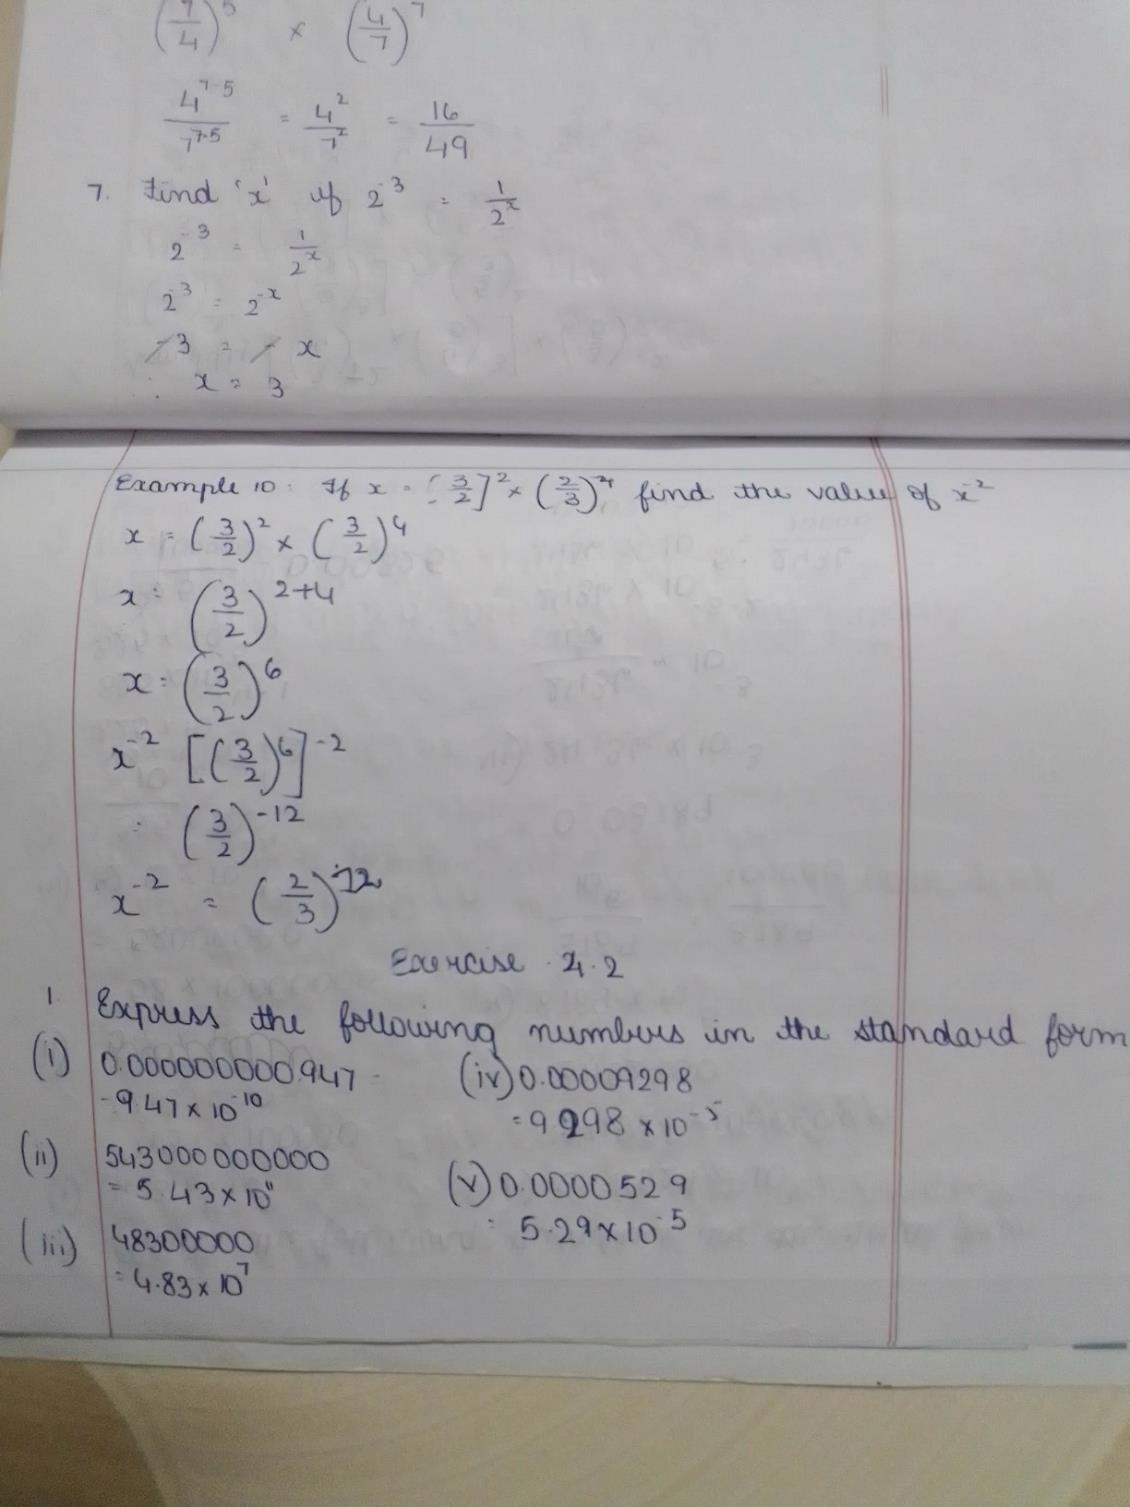 (7/4)^5 × (4/7)^7
4^7-5/7^7-5 = 4^2/7^2 = 16/49
7. Find 'x' if 2^-3 = 1/2^x
2^-3 = 1/2^x
2^-3 = 2^-x
-3 = - x
∴ x = 3
Example 10: If x = (3/2]^2 × (2/3)^-4 find the value of x^-2
x = (3/2)^2 × (3/2)^4
x = (3/2)^2+4
x = (3/2)^6
x^-2 [(3/2)^6]^-2
= (3/2)^-12
x^-2 = (2/3)^12
Exercise 4.2
1. Express the following numbers in the standard form
(i) 0.000000000947
= 9.47 × 10^-10
(ii) 543000000000
= 5.43 × 10^11
(iii) 48300000
= 4.83 × 10^7
(iv) 0.00009298
= 9.298 × 10^-5
(v) 0.0000529
= 5.29 × 10^-5